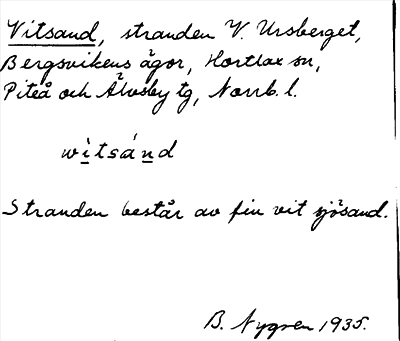 Vitsand, stranden V. Ursberget,
Bergsvikens ägor, Hortlax sn,
Piteå och Älvsby tg, Norrb. l.
witsánd
Stranden består av fin vit sjösand.
B. Nygren 1935.